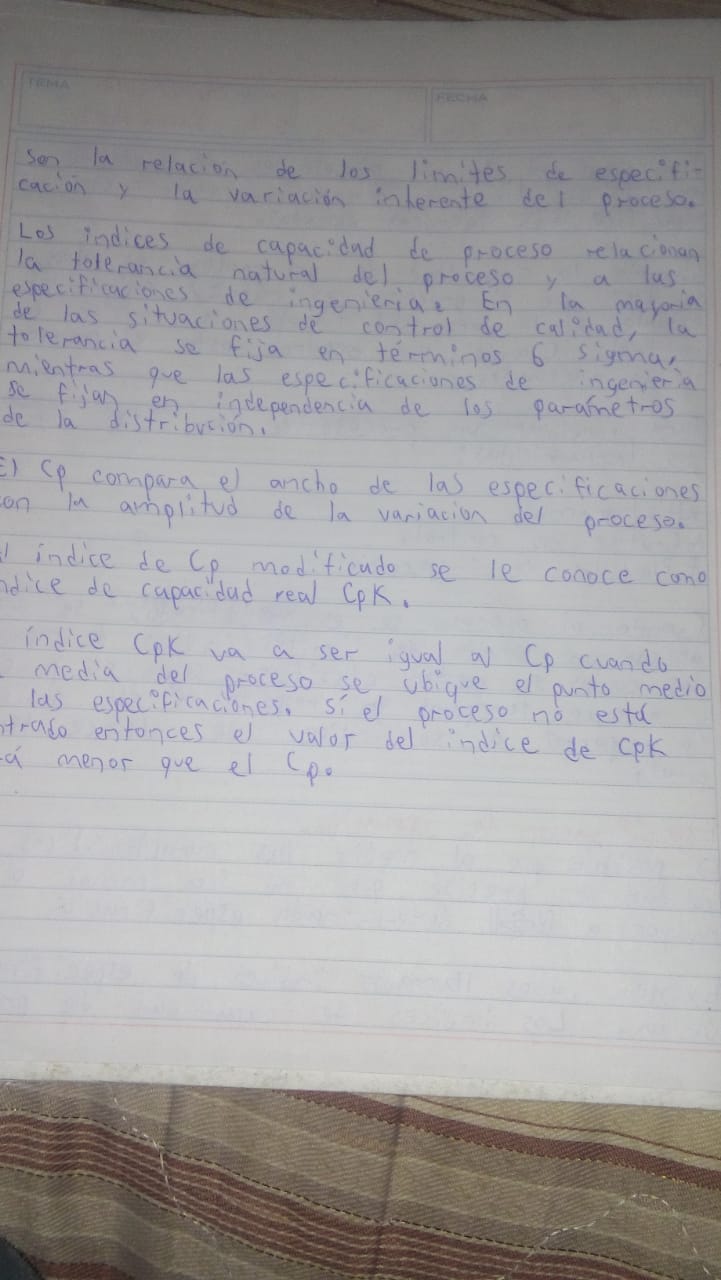 TEMA
FECHA
son la relación de los limites de especifi-
cación y la variación inherente del proceso.
Los indices de capacidad de proceso relacionan
la tolerancia natural del proceso y a las
especificaciones de ingenieria. En la mayoria
de las situaciones de control de calidad, la
tolerancia se fija en términos 6 sigma,
mientras que las especificaciones de ingenieria
se fijan en independencia de los parámetros
de la distribución.
El Cp compara el ancho de las especificaciones
con la amplitud de la variacion del proceso.
l indice de Cp modificado se le conoce como
ndice de capacidad real CpK.
indice CpK va a ser igual al Cp cuando
media del proceso se ubique el punto medio
las especificaciones. Sí el proceso no está
ntrado entonces el valor del indice de CpK
rá menor que el Cp.